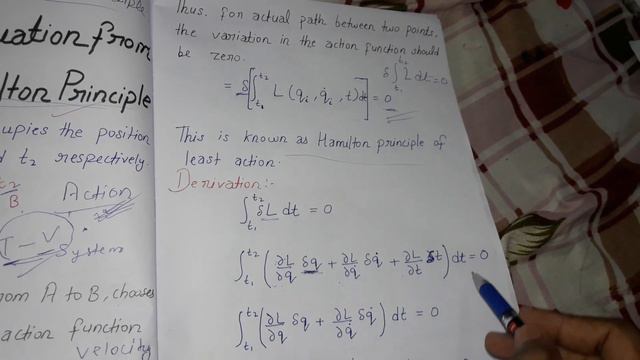 uation from
lton Principle
cupies the position
t2 respectively.
B
Action
T - V
System
rom A to B, chooses
action function
velocity
Thus. for actual path between two points,
the variation in the action function should
be zero.
δ∫_{t1}^{t2} L dt = 0
= δ[∫_{t1}^{t2} L (q_i, q̇_i, t) dt] = 0
This is known as Hamilton principle of
least action.
Derivation:-
∫_{t1}^{t2} δL dt = 0
∫_{t1}^{t2} (∂L/∂q δq + ∂L/∂q̇ δq̇ + ∂L/∂t δt) dt = 0
∫_{t1}^{t2} (∂L/∂q δq + ∂L/∂q̇ δq̇) dt = 0